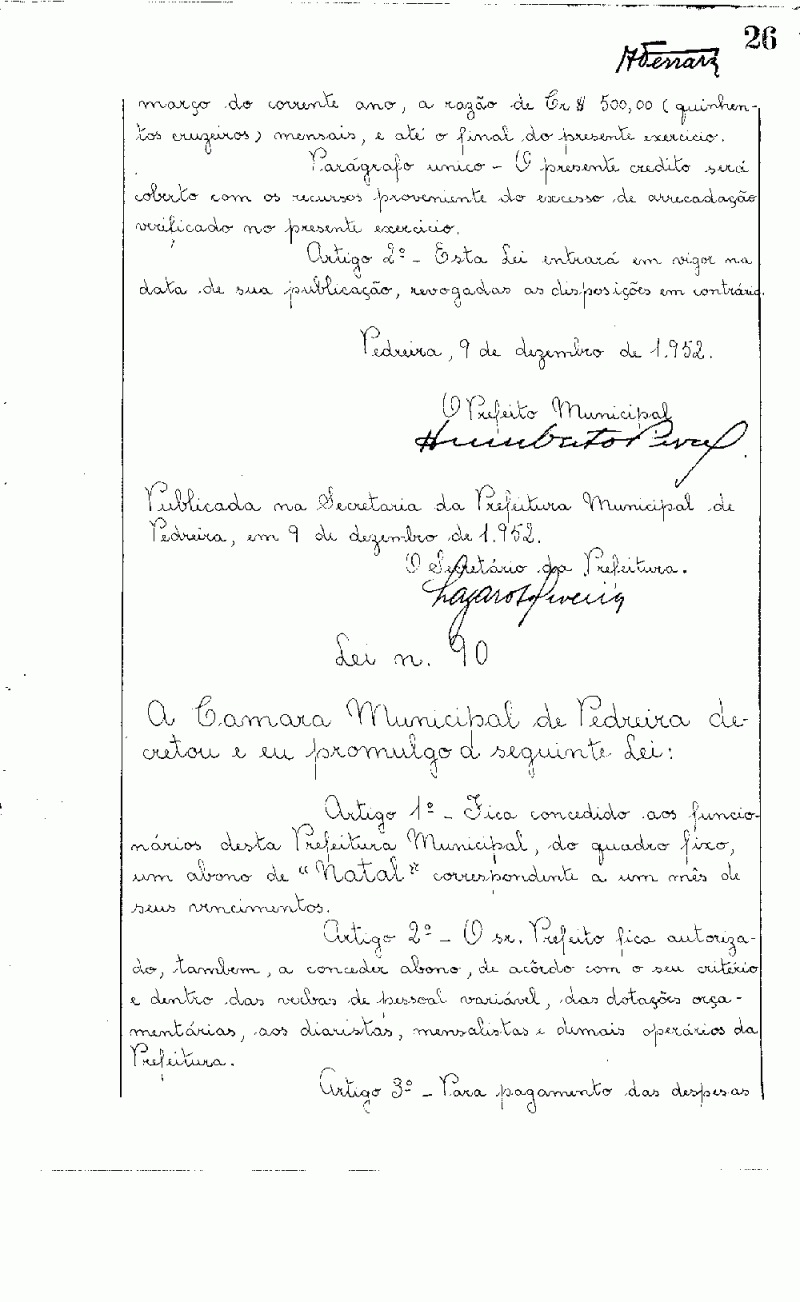 26
março do corrente ano, a razão de Cr $ 500,00 (quinhen-
tos cruzeiros) mensais, e até o final do presente exercício.
Parágrafo unico - O presente credito será
coberto com os recursos proveniente do excesso de arrecadação
verificado no presente exercício.
Artigo 2º - Esta Lei entrará em vigor na
data de sua publicação, revogadas as disposições em contrário.
Pedreira, 9 de dezembro de 1.952.
O Prefeito Municipal
Humberto
Publicada na Secretaria da Prefeitura Municipal de
Pedreira, em 9 de dezembro de 1.952.
O Secretário da Prefeitura.
Lei n. 90
A Camara Municipal de Pedreira de-
cretou e eu promulgo a seguinte Lei:
Artigo 1º - Fica concedido aos funcio-
nários desta Prefeitura Municipal, do quadro fixo,
um abono de "Natal" correspondente a um mês de
seus vencimentos.
Artigo 2º - O sr. Prefeito fica autoriza-
do, tambem, a conceder abono, de acôrdo com o seu critério
e dentro das verbas de pessoal variável, das dotações orça-
mentárias, aos diaristas, mensalistas e demais operários da
Prefeitura.
Artigo 3º - Para pagamento das despesas